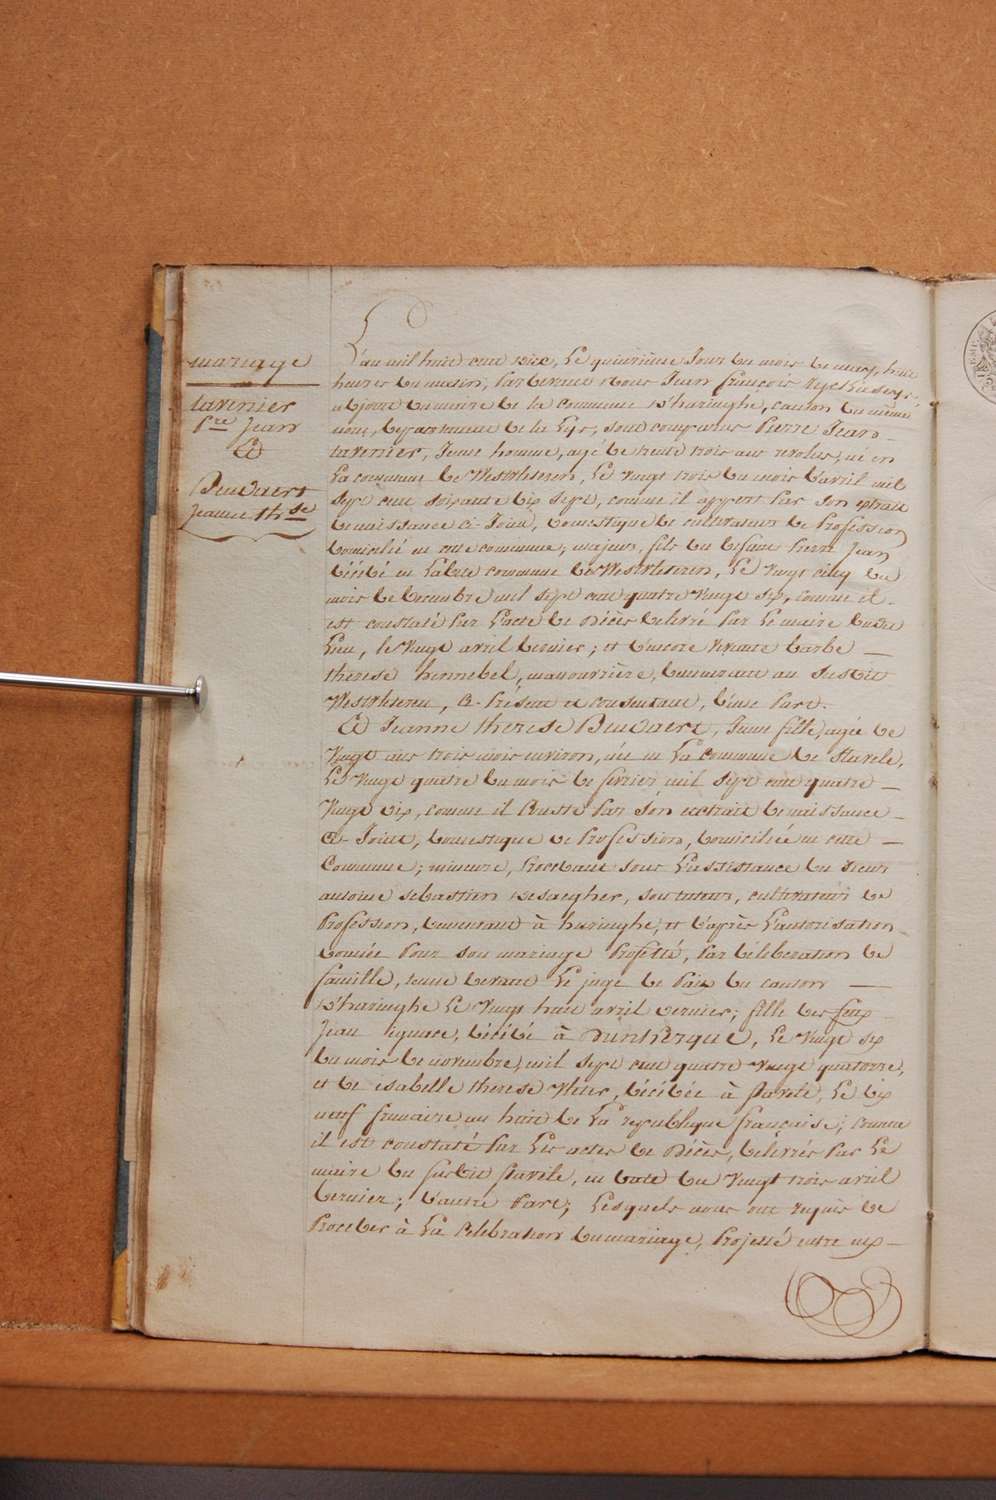 mariage
tavernier
P.re Jean
&
Beudaert
Jeanne th.se
L'an mil huit cent dixe, Le quinzieme Jour du mois de mars, huit
heures du matin, Pardevant Nous Jean françois
adjoint du maire de la commune d'haringhe, canton du même
nom, département de la Lys, sont comparus Pierre Jean
tavernier, Jeune homme, agé de trente trois ans revolus, né en
La commune de Westvleteren, Le vingt trois du mois d'avril mil
Sept cent soixante dix sept, comme il appert par Son extrait
de naissance ci-Joint, domestique de cultivateur de Profession
domicilié en cette commune, majeur, fils du défunt Pierre Jean
décédé en Ladite commune de Westvleteren, Le vingt cinq du
mois de decembre mil sept cent quatre vingt six, comme il
est constaté Par L'acte de Décès delivré Par Le maire dudit
Lieu, le vingt avril dernier; et d'encore vivante barbe
therese hennebel, manouvrière, demeurant au Susdit
Westvleteren, ci-Présente et consentante, d'une Part.
Et Jeanne therese Beudaert, Jeune fille, agée de
Vingt ans trois mois environ, née en La commune de Stavele,
Le vingt quatre du mois de fevrier mil Sept cent quatre
Vingt dix, comme il Conste Par Son extrait de naissance
ci-Joint, domestique de Profession, domiciliée en cette
Commune; mineure, Procedant sous L'assistance du Sieur
antoine sebastien Desaegher, son tuteur, cultivateur de
Profession, demeurant à haringhe, et d'après L'autorisation
donnée Pour son mariage Projetté, Par deliberation de
famille, tenue devant Le juge de Paix du canton
d'haringhe Le vingt huit avril dernier; fille des feux
Jean Ignace, décédé à Dunkerque, Le vingt six
du mois de novembre, mil sept cent quatre vingt quatorze,
et de isabelle therese décédée à Stavele, Le dix
neuf frimaire an huit de La republique française; comme
il est constaté Par Les actes de Décès, delivrés Par Le
maire du susdit Stavele, en date du vingt trois avril
dernier; d'autre Part; Lesquels nous ont requis de
Proceder à La Celebration du mariage, Projetté entre eux